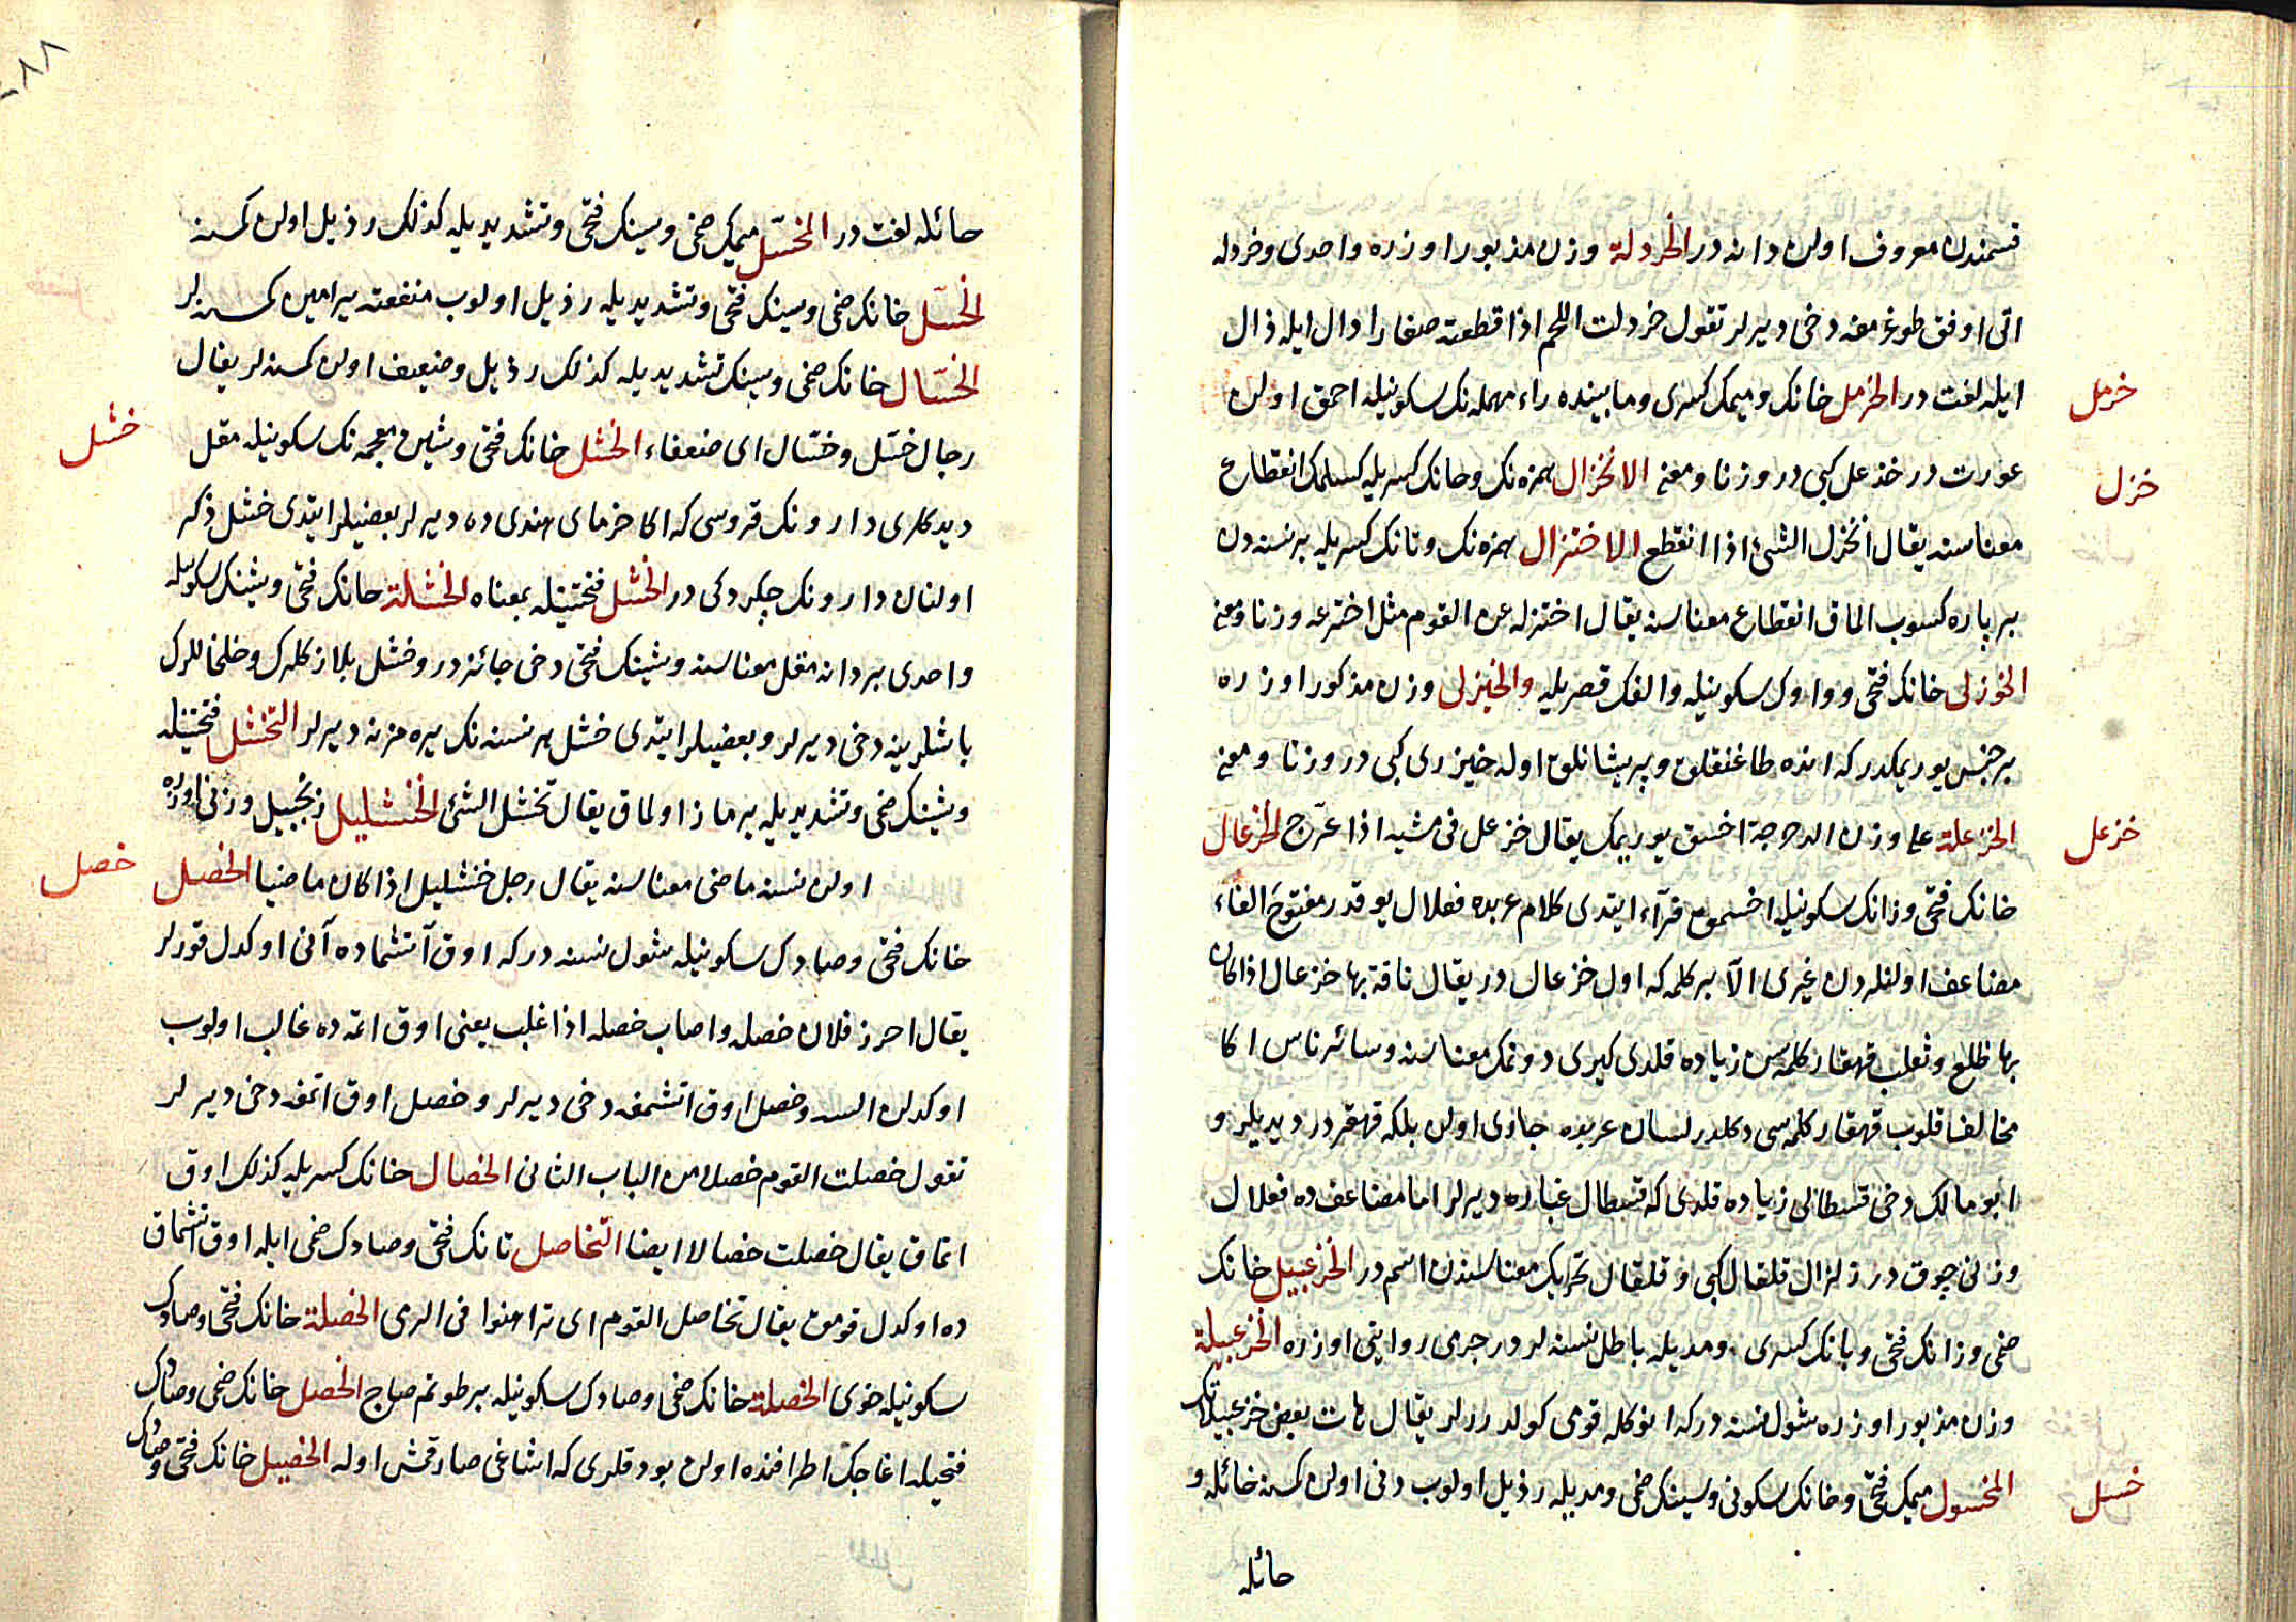 قسمندن معروف اولن دانه در الخردلة وزن مذبور اوزره واحدی وخردله
اتی اوفق طوغرمغه دخی دیرلر تقول خردلت اللحم اذا قطعته صغارا دال ایله ذال
خرمل
ایله لغت در الخرمل خانک ومیمک کسری ومابینده راء مهمله نک سکونیله احمق اولن
خزل
عورت در خذعل کبی در وزنا ومعنی الانخزال همزه نک وخانک کسریله کسلمک انقطاع
معناسنه یقال انخزل الشئ اذا انقطع الاختزال همزه نک وتانک کسریله بر نسنه دن
بر پاره کسوب الماق انقطاع معناسنه یقال اختزله عن القوم مثل اختزعه وزنا ومعنی
الخوزلی خانک فتحی وواوک سکونیله والفک قصریله والخیزلی وزن مذکور اوزره
بر جنس یوریمکدر که انده طاغنقلق وپریشانلق اوله خیزری کبی در وزنا ومعنی
خزعل
الخزعلة علی وزن الدحرجة اخسق یوریمک یقال خزعل فی مشیه اذا عرّج الخزعال
خانک فتحی وزانک سکونیله اخسمق فرآء ایتدی کلام عربده فعلال یوقدر مفتوح الفاء
مضاعف اولنلردن غیری الّا بر کلمه که اول خزعال در یقال ناقة بها خزعال اذا کان
بها ظلع وثعلب قهقار کلمه سن زیاده قلدی کیری دونمک معناسنه وسائر ناس اکا
مخالفا قلوب قهقار کلمه سی دکلدر لسان عربده جاری اولن بلکه قهقر در دیدیلر و
ابو مالک دخی قسطالی زیاده قلدی که قسطال غباره دیرلر اما مضاعف ده فعلال
وزنی چوق در زلزال قلقال کبی وقلقال تحریک معناسندن اسم در الخزعبیل خانک
ضمی وزانک فتحی وبانک کسری ومدیله باطل نسنه لر در جرمی روایتی اوزره الخزعبیلة
وزن مذبور اوزره شول نسنه در که انوکله قومی کولدررلر یقال هات بعض خزعبیلاتک
خسل
المخسول میمک فتحی وخانک سکونی وسینک ضمی ومدیله رذیل اولوب دنی اولن کمسنه خائله و
حائله
حائله لغت در المخسّل میمک ضمی وسینک فتحی وتشدیدیله کذلک رذیل اولن کمسنه
الخسّل خانک ضمی وسینک فتحی وتشدیدیله رذیل اولوب منفعته یرامین کمسنه لر
الخسّال خانک ضمی وسینک تشدیدیله کذلک رذیل وضعیف اولن کمسنه لر یقال
خشل
رجال خسّل وخسّال ای ضعفاء الخشل خانک فتحی وشین معجمه نک سکونیله مقل
دیدکلری دارونک قروسی که اکا خرمای هندی ده دیرلر بعضیلر ایتدی خشل ذکر
اولنان دارونک چکردکی در الخشل فتحتینله بمعناه الخشلة خانک فتحی وشینک سکونیله
واحدی بر دانه مقل معناسنه وشینک فتحی دخی جائز در وخشل بلازکلرک وخلخاللرک
باشلرینه دخی دیرلر وبعضیلر ایتدی خشل هر نسنه نک یره مزنه دیرلر التخشل فتحتینله
وشینک ضمی وتشدیدیله یرماز اولماق یقال تخشل الشئ الخنشلیل زنجبیل وزنی اوزره
خصل
اولن نسنه ماضی معناسنه یقال رجل خنشلیل اذا کان ماضیا الخصل
خانک فتحی وصادک سکونیله شول نسنه در که اوق آتشماده آنی اوکدل قورلر
یقال احرز فلان خصله واصاب خصله اذا غلب یعنی اوق اتمه ده غالب اولوب
اوکدلن السه وخصل اوق اتشمغه دخی دیرلر وخصل اوق اتمغه دخی دیرلر
تقول خصلت القوم خصلا من الباب الثانی الخصال خانک کسریله کذلک اوق
اتماق یقال خصلت خصالا ایضا التخاصل تانک فتحی وصادک ضمی ایله اوق اتشماق
ده اوکدل قومق یقال تخاصل القوم ای تراهنوا فی الرمی الخصلة خانک فتحی وصادک
سکونیله خوی الخصلة خانک ضمی وصادک سکونیله بر طوتم صاج الخصل خانک ضمی وصادک
فتحیله اغاجک اطرافنده اولن بوداقلری که اشاغی صارقمش اوله الخصیل خانک فتحی وصادک